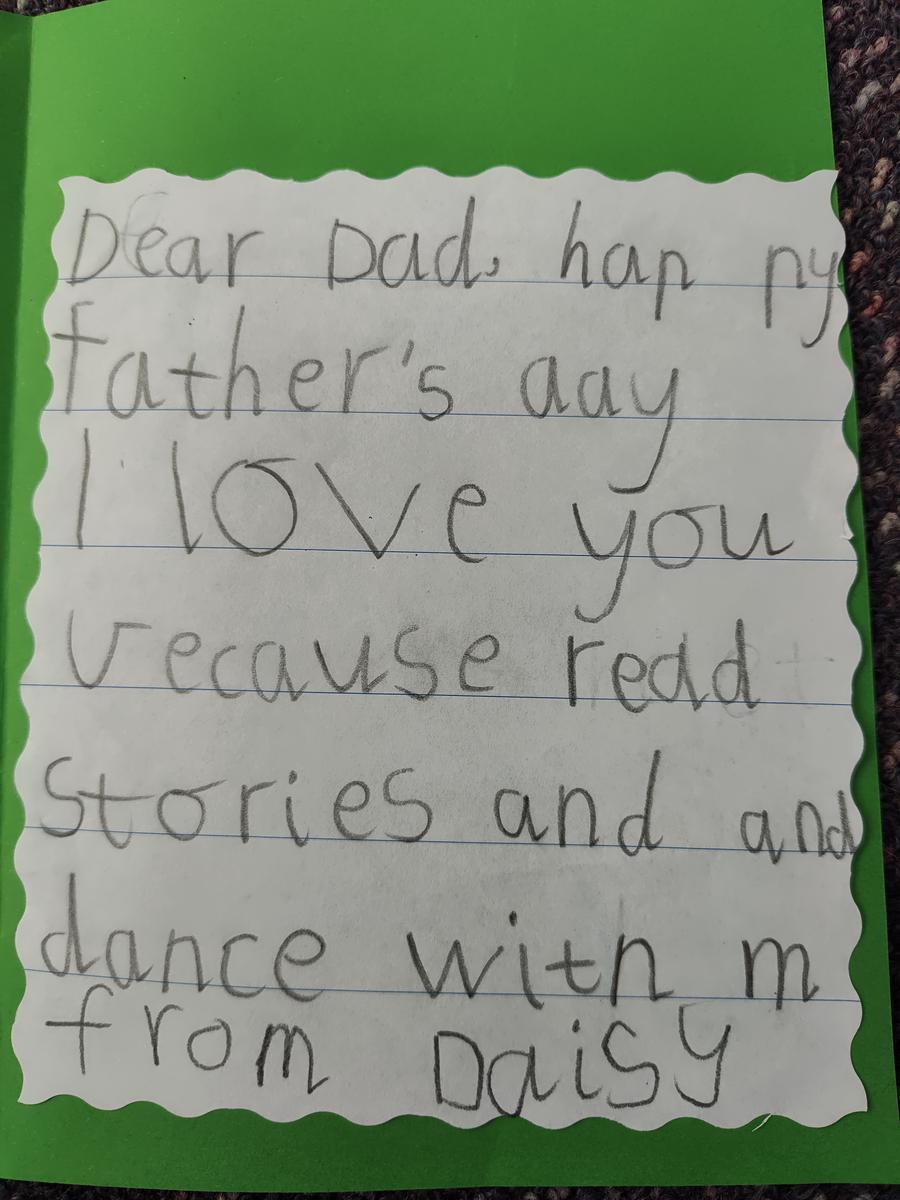 Dear Dad, hap py
father's aay
I love you
vecause read
stories and and
dance with m
from Daisy